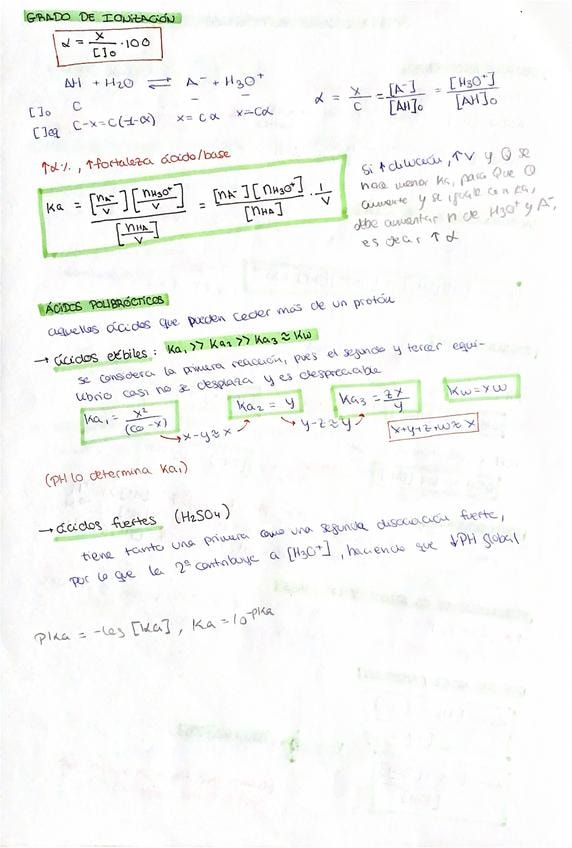 GRADO DE IONIZACIÓN
α = x / []₀ · 100
AH + H₂O ⇌ A⁻ + H₃O⁺
[]₀ C – –
[]eq C-x=C(1-α) x=Cα x=Cα
α = x/C = [A⁻]/[AH]₀ = [H₃O⁺]/[AH]₀
↑α%, ↑fortaleza ácido/base
Ka = [nA⁻/V][nH₃O⁺/V] / [nHA/V] = [nA⁻][nH₃O⁺]/[nHA] · 1/V
Si ↑dilución, ↑V y Q se
hace menor Ka, para que Q
aumente y se iguale con Ka,
debe aumentar n de H₃O⁺ y A⁻,
es decir ↑α
ÁCIDOS POLIPRÓTICOS
aquellos ácidos que pueden ceder más de un protón
→ ácidos débiles: Ka₁ >> Ka₂ >> Ka₃ ≈ Kw
se considera la primera reacción, pues el segundo y tercer equi-
librio casi no se desplaza y es despreciable
Ka₁ = x²/(C₀-x) Ka₂ = y Ka₃ = zx/y Kw = xw
→ x-y≈x → y-z≈y x+y+z+w≈x
(PH lo determina Ka₁)
→ ácidos fuertes (H₂SO₄)
tiene tanto una primera como una segunda disociación fuerte,
por lo que la 2ª contribuye a [H₃O⁺], haciendo que ↓PH global
pKa = -log [Ka], Ka = 10^-pKa